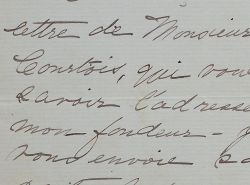 lettre de Monsieur
Courtois, qui vou
savoir l'adresse
mon fondeur -
vous envoie sa